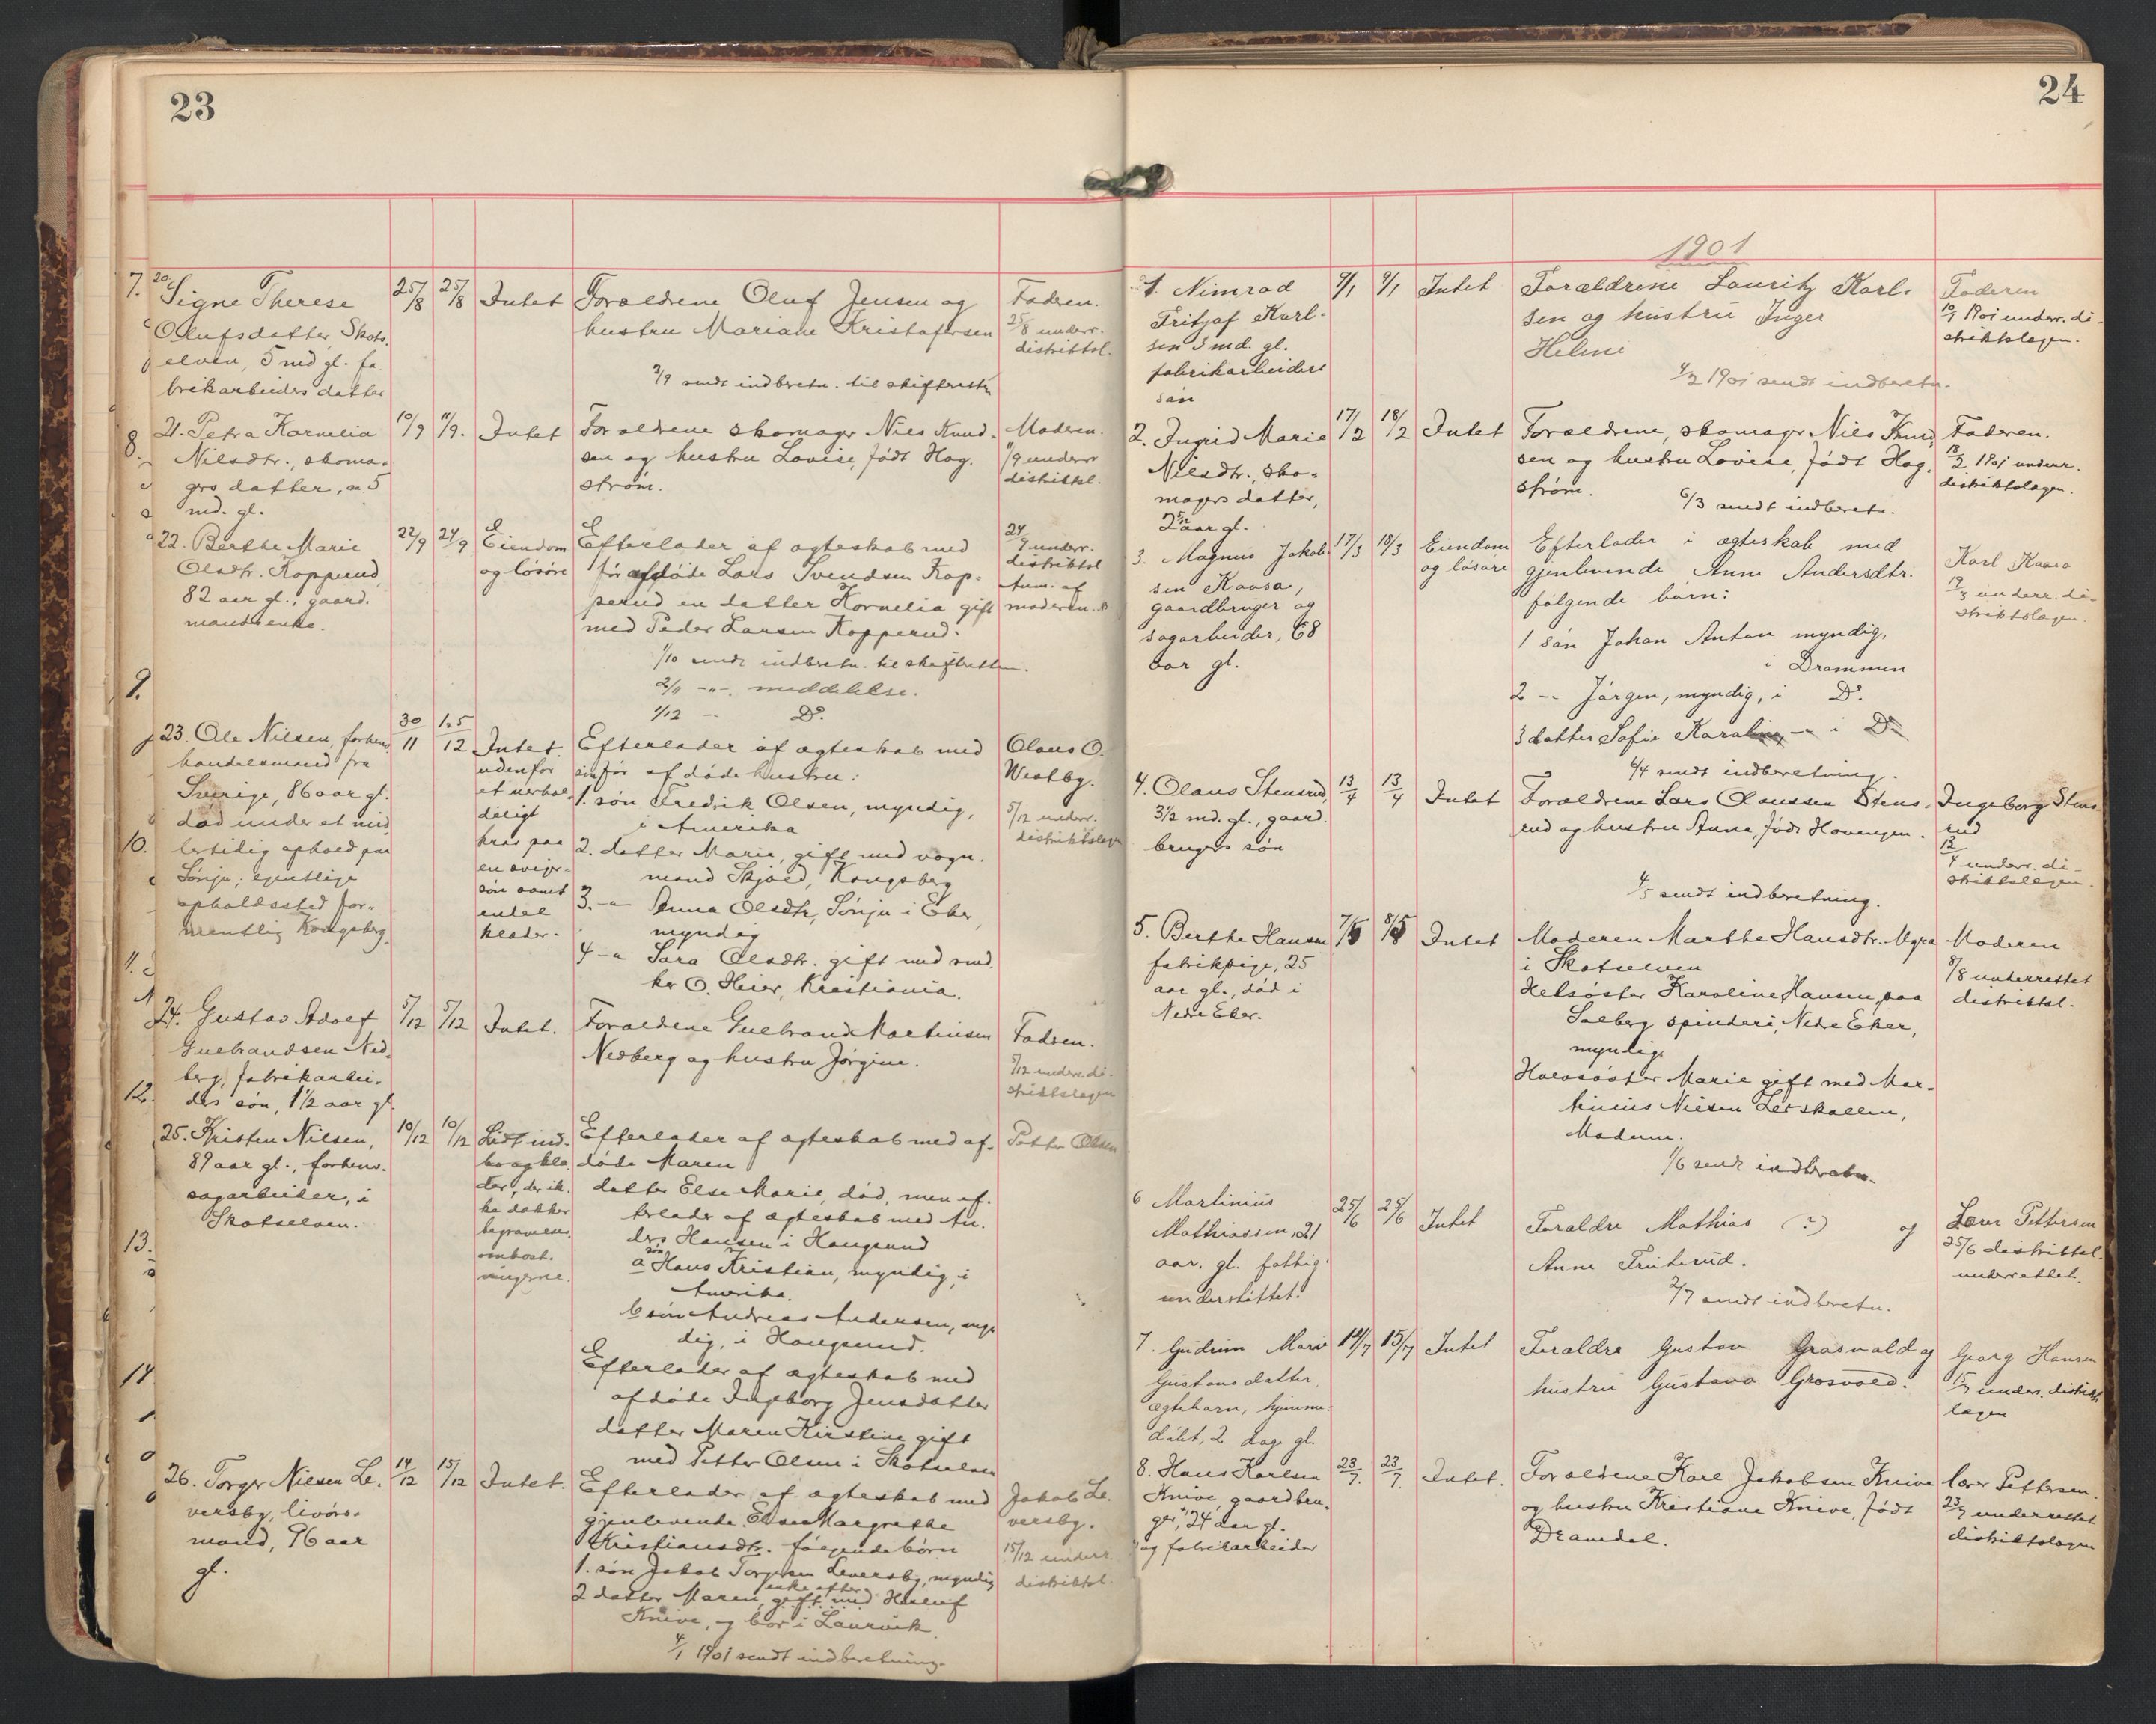 23
20. Signe Therese
Olufsdatter, Skots-
elven, 5 md gl. fa-
brikarbeiders datter
25/8
25/8
Intet
Forældrene Oluf Jensen og
hustru Mariane Kristofersen
3/9 sendt indberetn. til skifteretten
Faderen.
25/8 underr.
distriktsl.
21. Petra Kornelia
Nilsdtr., skoma-
gers datter, 5
md. gl.
10/9
11/9.
Intet
Forældrene skomager Nils Knud-
sen og hustru Lovise, født Hag-
strøm.
Moderen.
11/9 underr
distriktsl.
22. Berthe Marie
Olsdtr. Kopperud,
82 aar gl., gaard-
mandsenke.
22/9
24/9
Eiendom
og løsøre
Efterlader af ægteskab med
før afdøde Lars Svendsen Kop-
perud en datter Kornelia gift
med Peder Larsen Kopperud.
1/10 sendt indberetn. til skifteretten.
2/11 -"- meddelelse.
1/12 - Do.
24/9 underr.
distriktsl
Anm. af
moderen.
23. Ole Nilsen, forhenv.
handelsmand fra
Sverige, 86 aar gl.
død under et mid-
lertidig ophold paa
Sønju; egentlige
opholdssted for-
mentlig Kongsberg.
30/11
1.5/12
Intet
udenfor
et ube-
deligt
krav paa
en sviger-
søn samt
endel
klæder.
Efterlader af ægteskab med
sin før afdøde hustru:
1. søn Fredrik Olsen, myndig,
i Amerika
2. datter Marie, gift med vogn-
mand Skjold, Kongsberg
3. -" Anna Olsdtr, Sønju i Eker,
myndig
4 -" Sara Olsdtr. gift med sned-
ker O. Heier, Kristiania.
Olaus O.
Westby.
5/12 underr.
distriktslægen
24. Gustav Adolf
Gulbrandsen Ned-
berg, fabrikarbei-
ders søn, 1½ aar gl
5/12
5/12
Intet.
Forældrene Gulbrand Martinsen
Nedberg og hustru Jørgine.
Faderen.
5/12 underr. di-
striktslægen
25. Kristen Nilsen,
89 aar gl., forhenv.
sagarbeider, i
Skotselven.
10/12
10/12
Lidt ind-
bo og klæ-
der, der ik-
ke dækker
begravelses-
omkost-
ningerne.
Efterlader af ægteskab med af-
døde Maren
datter Else Marie, død, men ef-
terlader af ægteskab med An-
ders Hansen i Hougsund
a søn Hans Kristian, myndig, i
Amerika.
b søn Andreas Andersen, myn-
dig, i Hougsund.
Efterlader af ægteskab med
afdøde Ingeborg Jensdatter
datter Maren Kirstine gift
med Petter Olsen i Skotselven
Petter Olsen
26. Torger Nilsen Le-
versby, livørs-
mand, 96 aar
gl.
14/12
15/12
Intet.
Efterlader af ægteskab med
gjenlevende Else Margrethe
Kristiansdtr. følgende børn
1. søn Jakob Torgersen Leversby, myndig
2 datter Maren, gift med enke efter Herluf
Knive, og bor i Laurvik.
4/1 1901 sendt indberetning.
Jakob Le-
versby.
15/12 underr.
distriktsl.
7.
8.
9.
10.
11.
12.
13.
14
24
1901
1. Nimrod
Fritjof Karl-
sen 3 md. gl.
fabrikarbeiders
søn
9/1
9/1
Intet
Forældrene Lauritz Karl-
sen og hustru Inger
Helene
4/2 1901 sendt indberetn.
Faderen
10/1 1901 underr. di-
striktslægen.
2. Ingrid Marie
Nilsdtr., sko-
magers datter,
2 aar gl.
17/2
18/2
Intet
Forældrene, skomager Nils Knud-
sen og hustru Lovise, født Hag-
strøm.
6/3 sendt indberetn.
Faderen.
18/2 1901 underr.
distriktslægen.
3. Magnus Jakob-
sen Kaasa,
gaardbruger og
sagarbeider, 68
aar gl.
17/3
18/3
Eiendom
og løsøre
Efterlader i ægteskab med
gjenlevende Anne Andersdtr.
følgende børn:
1 søn Johan Anton myndig,
i Drammen
2 -" Jørgen, myndig, i Do.
3 datter Sofie Karoline -" i Do.
4/4 sendt indberetning.
Karl Kaasa
19/3 underr. di-
striktslægen.
4. Olaus Stensrud,
3½ md. gl., gaard-
brugers søn
13/4
13/4
Intet
Forældrene Lars Olaussen Stens-
rud og hustru Anna, født Hovengen.
4/5 sendt indberetning.
Ingeborg Stens-
rud
13/4 underr. di-
striktslægen.
5. Berthe Hansen
fabrikpige, 25
aar gl., død i
Nedre Eker.
7/5
8/5
Intet
Moderen Marthe Hansdtr. Myra
i Skotselven
Helsøster Karoline Hansen, paa
Solberg spinderi, Nedre Eker,
myndig.
Halvsøster Marie gift med Mar-
tinius Nilsen Letskallen,
Modum.
1/6 sendt indberetn.
Moderen
8/8 underrettet
distriktsl.
6 Martinius
Mathiassen, 21
aar. gl. fattig-
understøttet.
25/6
25/6
Intet
Forældre Mathias (?) og
Anne Fruterud.
2/7 sendt indberetn.
Lærer Pettersen
25/6 distriktsl.
underrettet.
7. Gudrun Marie
Gustavsdatter,
ægtebarn, hjemme-
døbt, 2 dage gl.
14/7
15/7
Intet
Forældre Gustav Grosvold og
hustru Gustava Grosvold.
Georg Hansen
15/7 underr. distrikts
lægen
8. Hans Karlsen
Knive, gaardbru-
ger, 24 aar gl.
og fabrikarbeider
23/7.
23/7.
Intet.
Forældrene Karl Jakobsen Knive
og hustru Kristiane Knive, født
Dramdal.
lærer Pettersen.
23/7 underrettet
distriktslægen